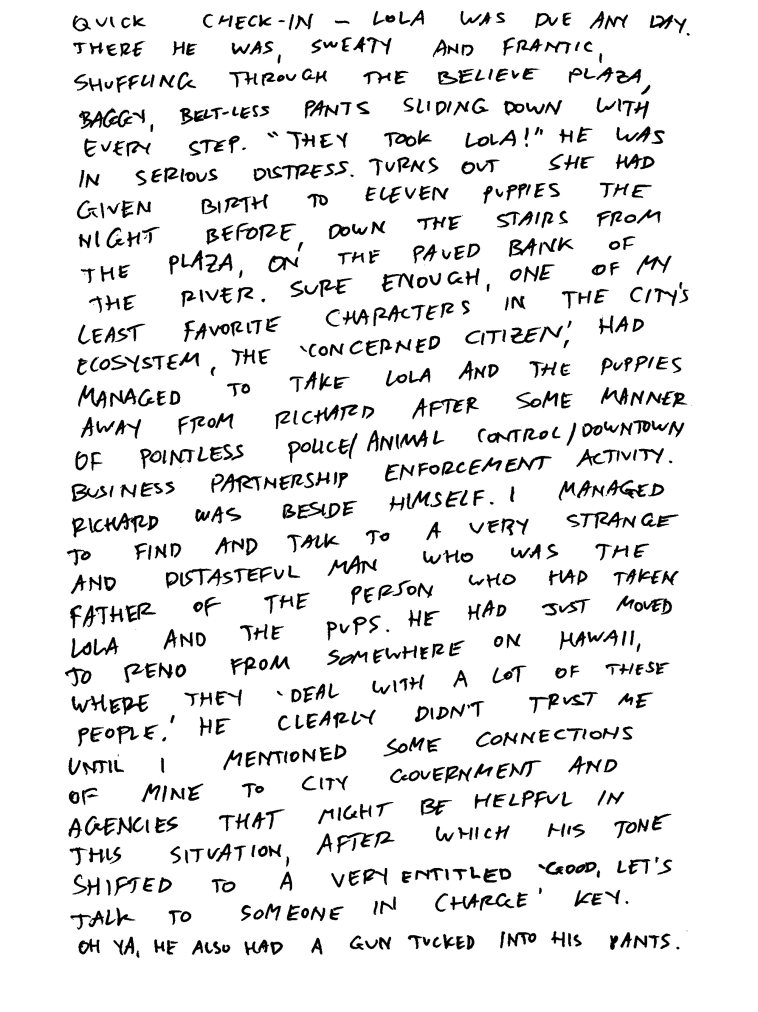 QUICK CHECK-IN – LOLA WAS DUE ANY DAY.
THERE HE WAS, SWEATY AND FRANTIC,
SHUFFLING THROUGH THE BELIEVE PLAZA,
BAGGY, BELT-LESS PANTS SLIDING DOWN WITH
EVERY STEP. "THEY TOOK LOLA!" HE WAS
IN SERIOUS DISTRESS. TURNS OUT SHE HAD
GIVEN BIRTH TO ELEVEN PUPPIES THE
NIGHT BEFORE, DOWN THE STAIRS FROM
THE PLAZA, ON THE PAVED BANK OF
THE RIVER. SURE ENOUGH, ONE OF MY
LEAST FAVORITE CHARACTERS IN THE CITY'S
ECOSYSTEM, THE 'CONCERNED CITIZEN', HAD
MANAGED TO TAKE LOLA AND THE PUPPIES
AWAY FROM RICHARD AFTER SOME MANNER
OF POINTLESS POLICE/ANIMAL CONTROL/DOWNTOWN
BUSINESS PARTNERSHIP ENFORCEMENT ACTIVITY.
RICHARD WAS BESIDE HIMSELF. I MANAGED
TO FIND AND TALK TO A VERY STRANGE
AND DISTASTEFUL MAN WHO WAS THE
FATHER OF THE PERSON WHO HAD TAKEN
LOLA AND THE PUPS. HE HAD JUST MOVED
TO RENO FROM SOMEWHERE ON HAWAII,
WHERE THEY 'DEAL WITH A LOT OF THESE
PEOPLE.' HE CLEARLY DIDN'T TRUST ME
UNTIL I MENTIONED SOME CONNECTIONS
OF MINE TO CITY GOVERNMENT AND
AGENCIES THAT MIGHT BE HELPFUL IN
THIS SITUATION, AFTER WHICH HIS TONE
SHIFTED TO A VERY ENTITLED 'GOOD, LET'S
TALK TO SOMEONE IN CHARGE' KEY.
OH YA, HE ALSO HAD A GUN TUCKED INTO HIS PANTS.